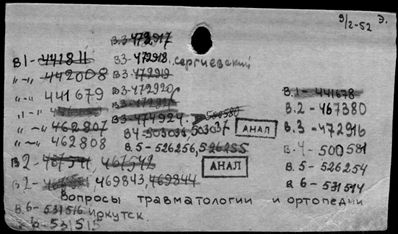 9/2-52 Э.
В.3-472917
В1-441811 В3-472918. Сергиевский
"-"- 442008 В3-472919
"-"- 441679 В3-472920 В.1-441678
В.2-467380
"-"- 462807 В.3-474924. 500580 В.3-472916
"-"- 462808 В4-503036, 503037 АНАЛ В.4-500581
В.5-526256, 526255 В.5-526254
В2- 467542 АНАЛ
В.2- 469843, 469844 В 6-531514
Вопросы травматологии и ортопедии
В.6-531516 Иркутск.
6-531515